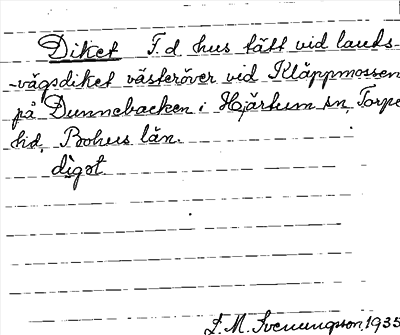 Diket F.d. hus tätt vid lands-
-vägsdiket västeröver vid Kläppmossen
på Dunnebacken i Hjärtum sn, Torpe
hd, Bohus län.
diget
L. M. Svenungsson, 1935